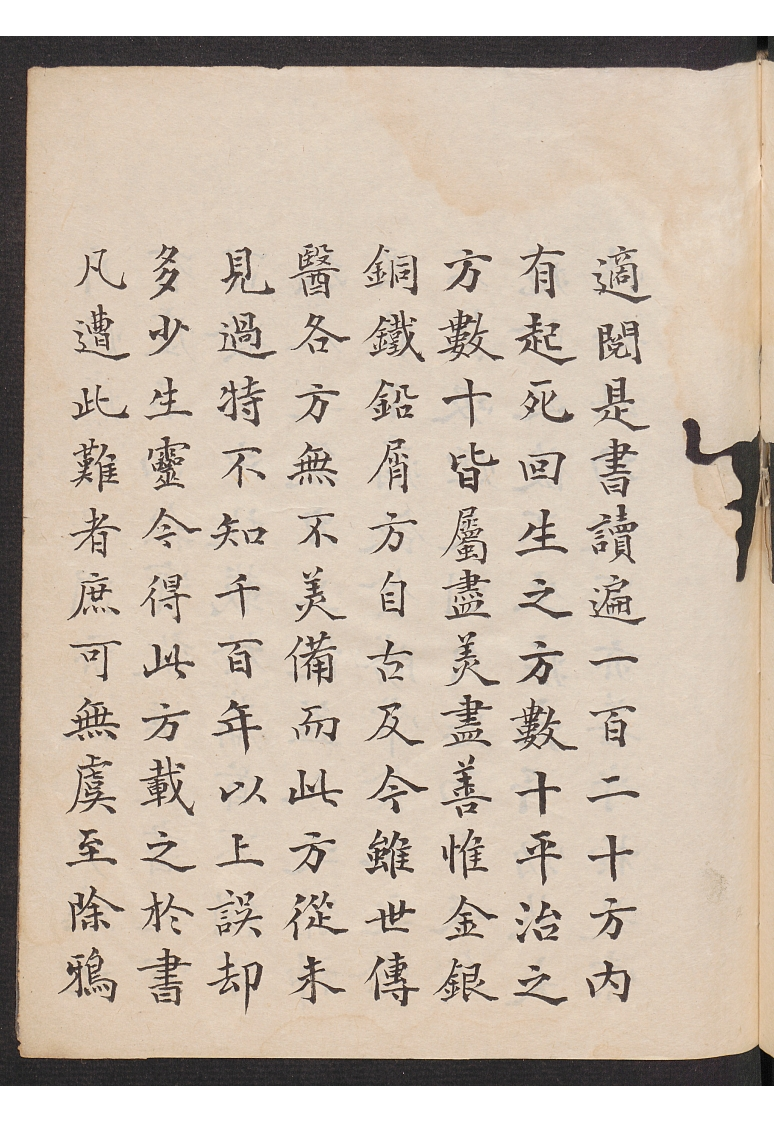 適閱是書讀遍一百二十方内
有起死回生之方數十平治之
方數十皆屬盡美盡善惟金銀
銅鐵鉛屑方自古及今雖世傳
醫各方無不美備而此方從未
見過特不知千百年以上誤却
多少生靈今得此方載之於書
凡遭此難者庶可無虞至除鴉